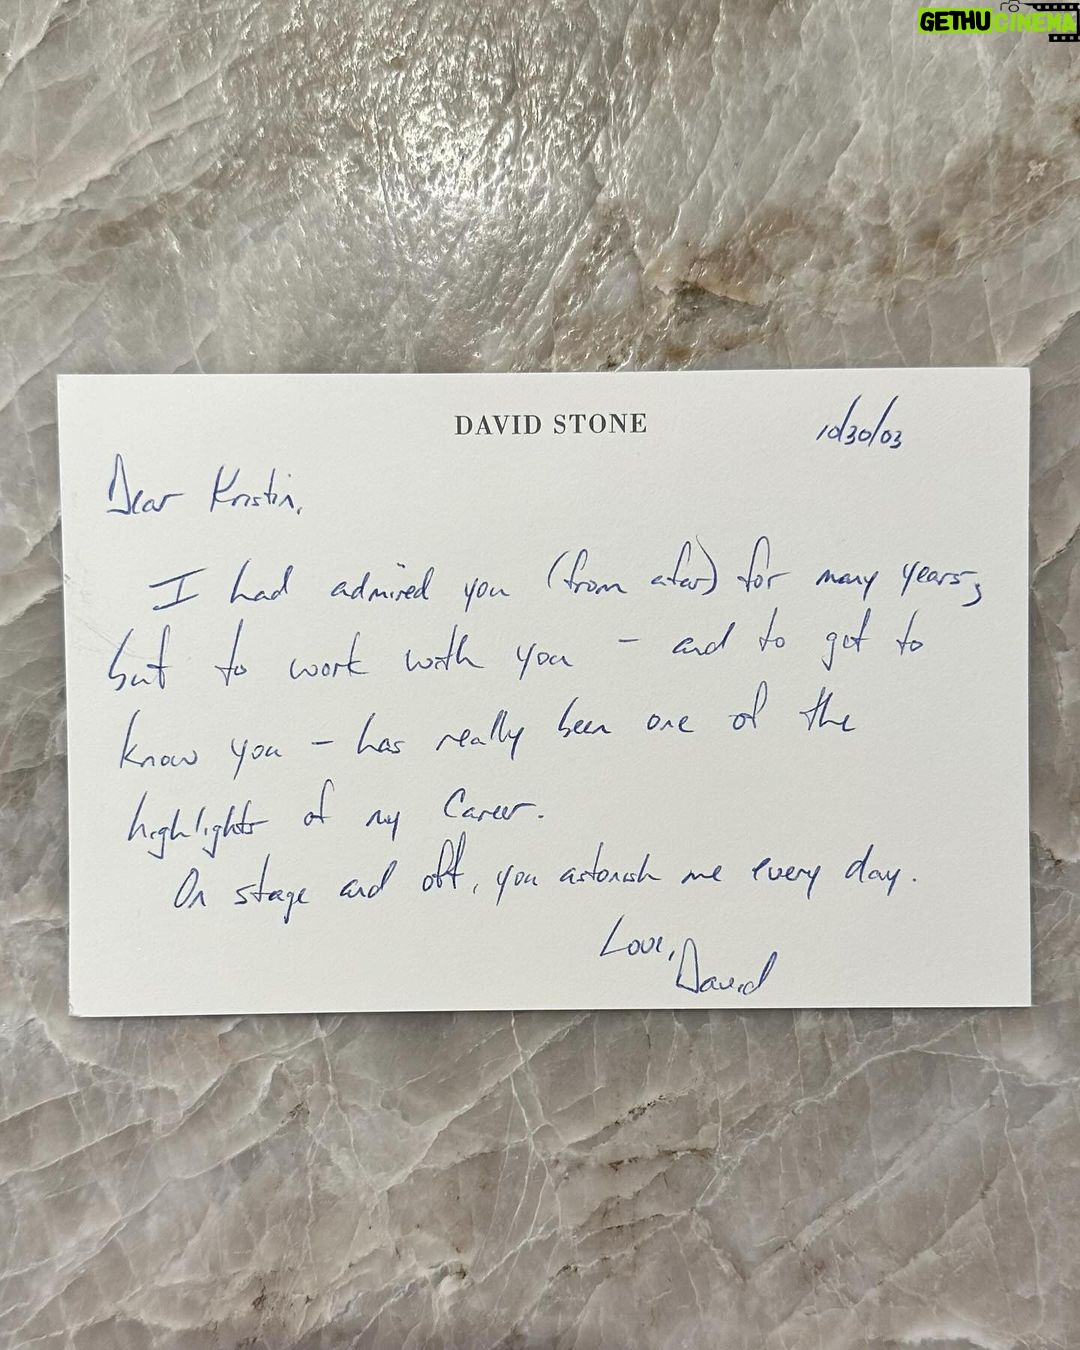 GETHUCINEMA
DAVID STONE
10/30/03
Dear Kristin,
I had admired you (from afar) for many years,
but to work with you - and to get to
know you - has really been one of the
highlights of my Career.
On stage and off, you astonish me every day.
Love,
David